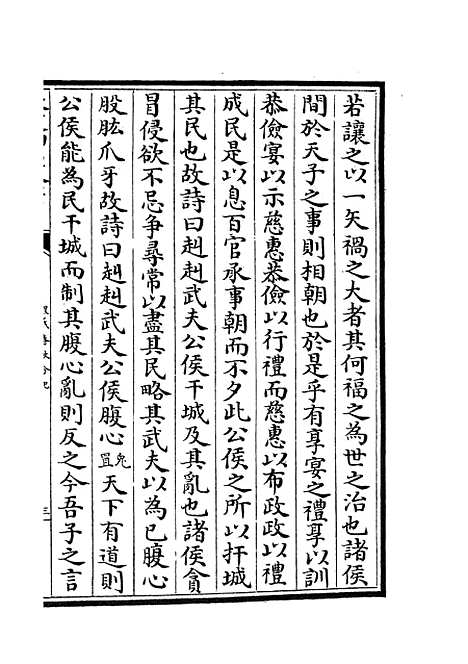 若讓之以一矢禍之大者其何福之為世之治也諸侯
間於天子之事則相朝也於是乎有享宴之禮享以訓
恭儉宴以示慈惠恭儉以行禮而慈惠以布政政以禮
成民是以息百官承事朝而不夕此公侯之所以扞城
其民也故詩曰赳赳武夫公侯干城及其亂也諸侯貪
冒侵欲不忌爭尋常以盡其民略其武夫以為已腹心
股肱爪牙故詩曰赳赳武夫公侯腹心兔罝天下有道則
公侯能為民干城而制其腹心亂則反之今吾子之言